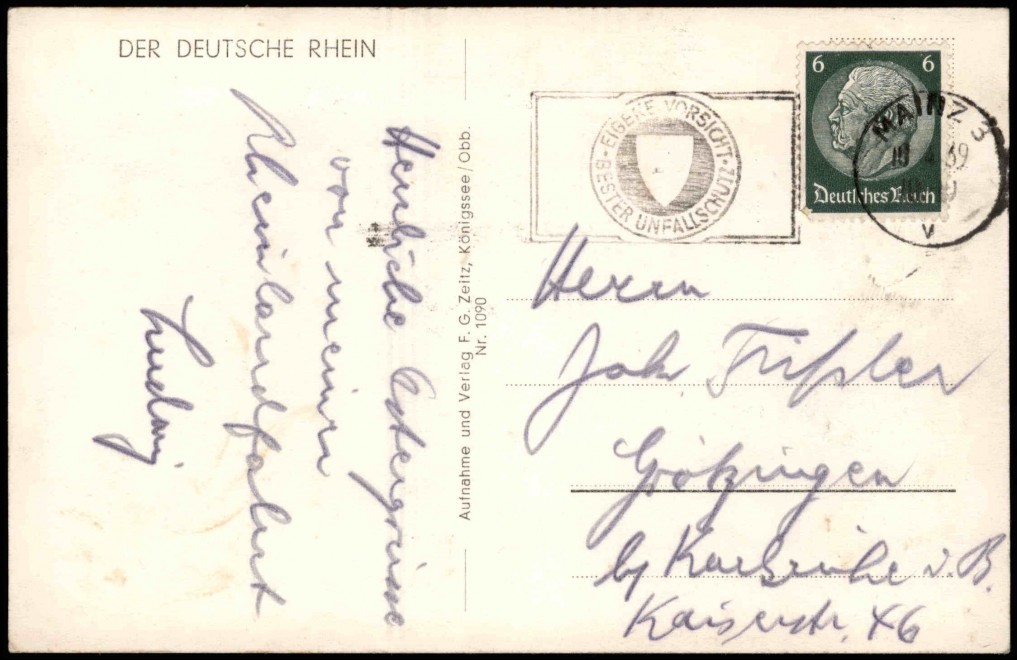 DER DEUTSCHE RHEIN
Herzliche Ostergrüsse
von meiner
Rheinlandfahrt
Ludwig
Aufnahme und Verlag F. G. Zeitz, Königssee/Obb.
Nr. 1090
EIGENE VORSICHT · BESTER UNFALLSCHUTZ ·
6 6
Deutsches Reich
MAINZ 3
10 4 39
V
Herrn
Joh
Grötzingen
by Karlsruhe i. B.
Kaiserstr. 46